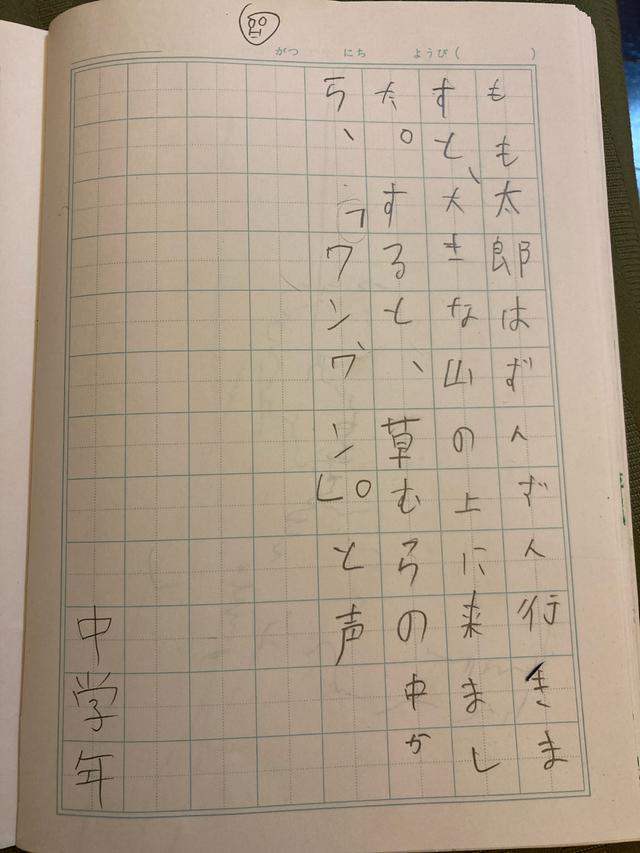 がつ にち ようび( )
もも太郎はずんずん行きま
すと、大きな山の上に来まし
た。すると、草むらの中か
ら、「ワンワン」と声
中学年